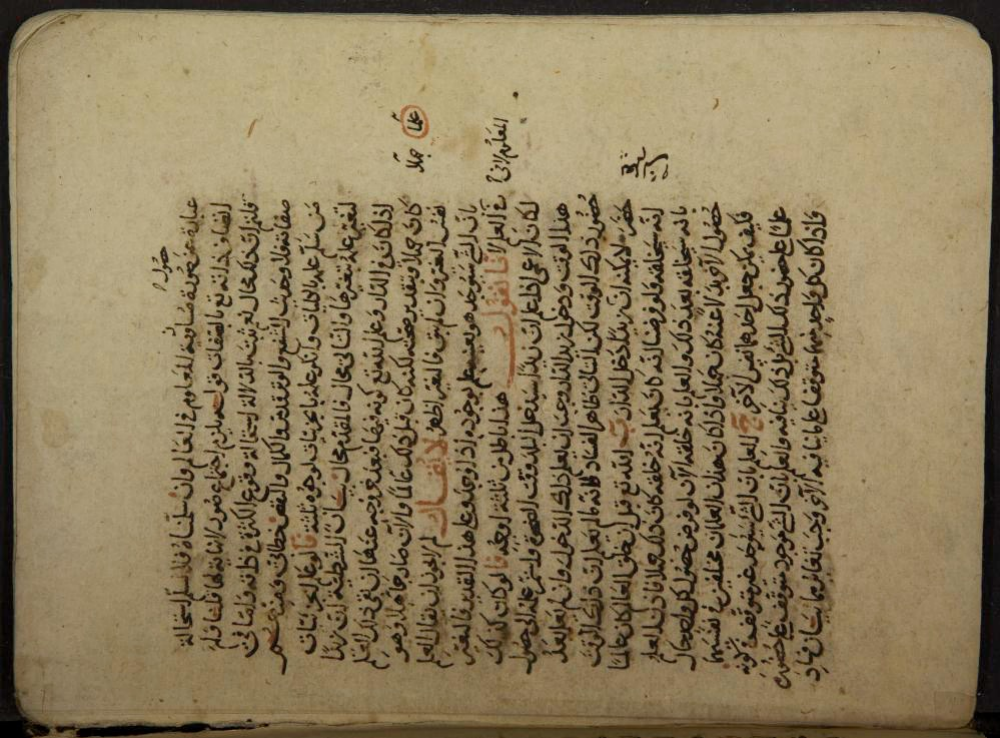 عبارة عن صورة مساوية للمعلوم في العالم وان سلمناه فلا نسلم استحالة
حصول
اتصاف ذاته تع بالصفات قوله يلزم اجتماع صور لا نهاية لها قلنا فلم
قلتم ان ذلك محال لم يثبت بالدلالة استحالة وقوع الكثرة في ذاته واما في
صفاته فلا وحديث الشفع والوتر نحو الكمال والنقص خطابي ومنهم
من سلم علمه بالكليات وانكر علمه بالجزئيات لوجوه ثلثة آ لو علم الجزئيات
لتغير علمه بتغيرها والتالي محال فالمقدم محال بيان الشرطية ان زيدا
اذا كان في الدار وعلم الله تع كونه فيها فبعد خروجه عنها ان بقي ذلك العلم
كان جهلا لكنه كان قبل ذلك عالما والآن صار جاهلا وهو
نفس التغير وان لم يبق فالتغير اظهر لا يقال لم لا يجوز ان يقال العلم
جهلا علما
بان الشي سيوجد هو لعينه علم بوجوده اذا وجد وعلى هذا التقدير فالتغير
في العلم لانا نقول هذا باطل من ثلثة اوجه آ لو كان كذلك
المعلوم لا في
لكان الاعمى اذا علم ان زيدا سيدخل البلد وقت الصبح واستمر علمه الى حصول
هذا الوقت ودخل زيد الدار وجب ان يعلم ذلك الدخول وان لم يعلم
حضور ذلك الوقت لكن التالي ظاهر الفساد فانه ما لم يعلم ان ذلك الوقت
حضر لا يمكنه ان زيدا دخل الدار ب الله تع قبل ان خلق العالم كان عالما
انه سيخلقه فلو فرضنا انه كان يعلم انه خلقه كان ذلك جهلا فاذن العلم
بانه سيخلقه بعد ذلك والعلم بانه خلقه الآن لو فرض حضور كل واحد حال
حضور الآخر بدلا عنه كان جهلا واذا كان هذان العلمان مختلفين في نفسيهما
فكيف يمكن جعل احدهما نفس الآخر ج العلم بان الشي سيوجد غير متوقف في كونه
علما على حصول ذلك الشي بل ذلك ينافيه والعلم بان الشي موجود متوقف على حضوره
فاذا كان كل واحد منهما متوقفا على ما ينافيه الآخر وجب تغايرهما بيان فساد